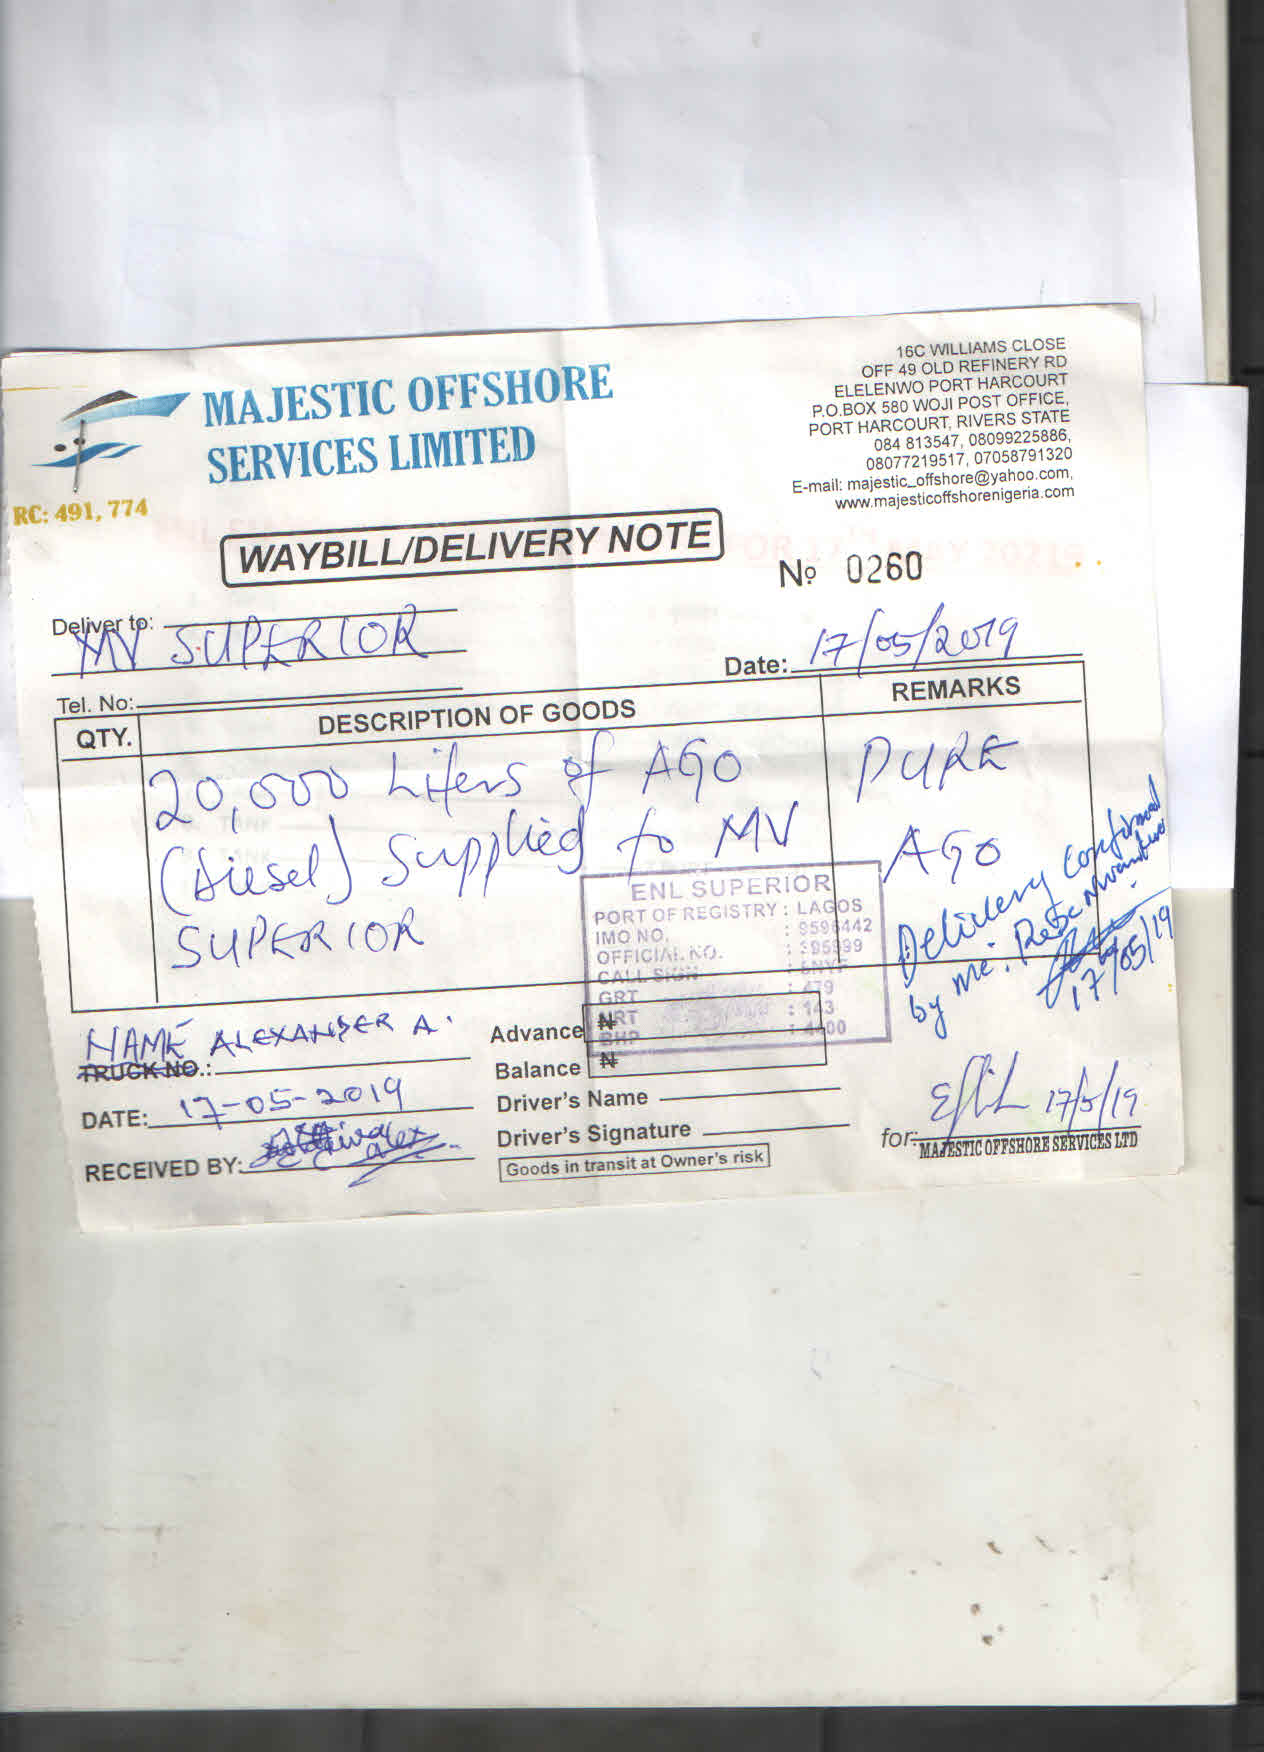 MAJESTIC OFFSHORE
SERVICES LIMITED
RC: 491, 774
16C WILLIAMS CLOSE
OFF 49 OLD REFINERY RD
ELELENWO PORT HARCOURT
P.O.BOX 580 WOJI POST OFFICE,
PORT HARCOURT, RIVERS STATE
084 813547, 08099225886,
08077219517, 07058791320
E-mail: majestic_offshore@yahoo.com,
www.majesticoffshorenigeria.com
WAYBILL/DELIVERY NOTE
№ 0260
Deliver to:
MV SUPERIOR
Date: 17/05/2019
Tel. No:
QTY. DESCRIPTION OF GOODS REMARKS
20,000 Liters of AGO PURE
(Diesel) Supplied to MV AGO
SUPERIOR
ENL SUPERIOR
PORT OF REGISTRY : LAGOS
IMO NO. : 9596442
OFFICIAL NO.
CALL SIGN
GRT : 479
NRT : 143
BHP : 4400
Delivery Confirmed
by me:
17/05/19
NAME ALEXANDER A.
TRUCK NO.:
DATE: 17-05-2019
RECEIVED BY:
Advance ₦
Balance ₦
Driver's Name
Driver's Signature
Goods in transit at Owner's risk
17/5/19
for: MAJESTIC OFFSHORE SERVICES LTD